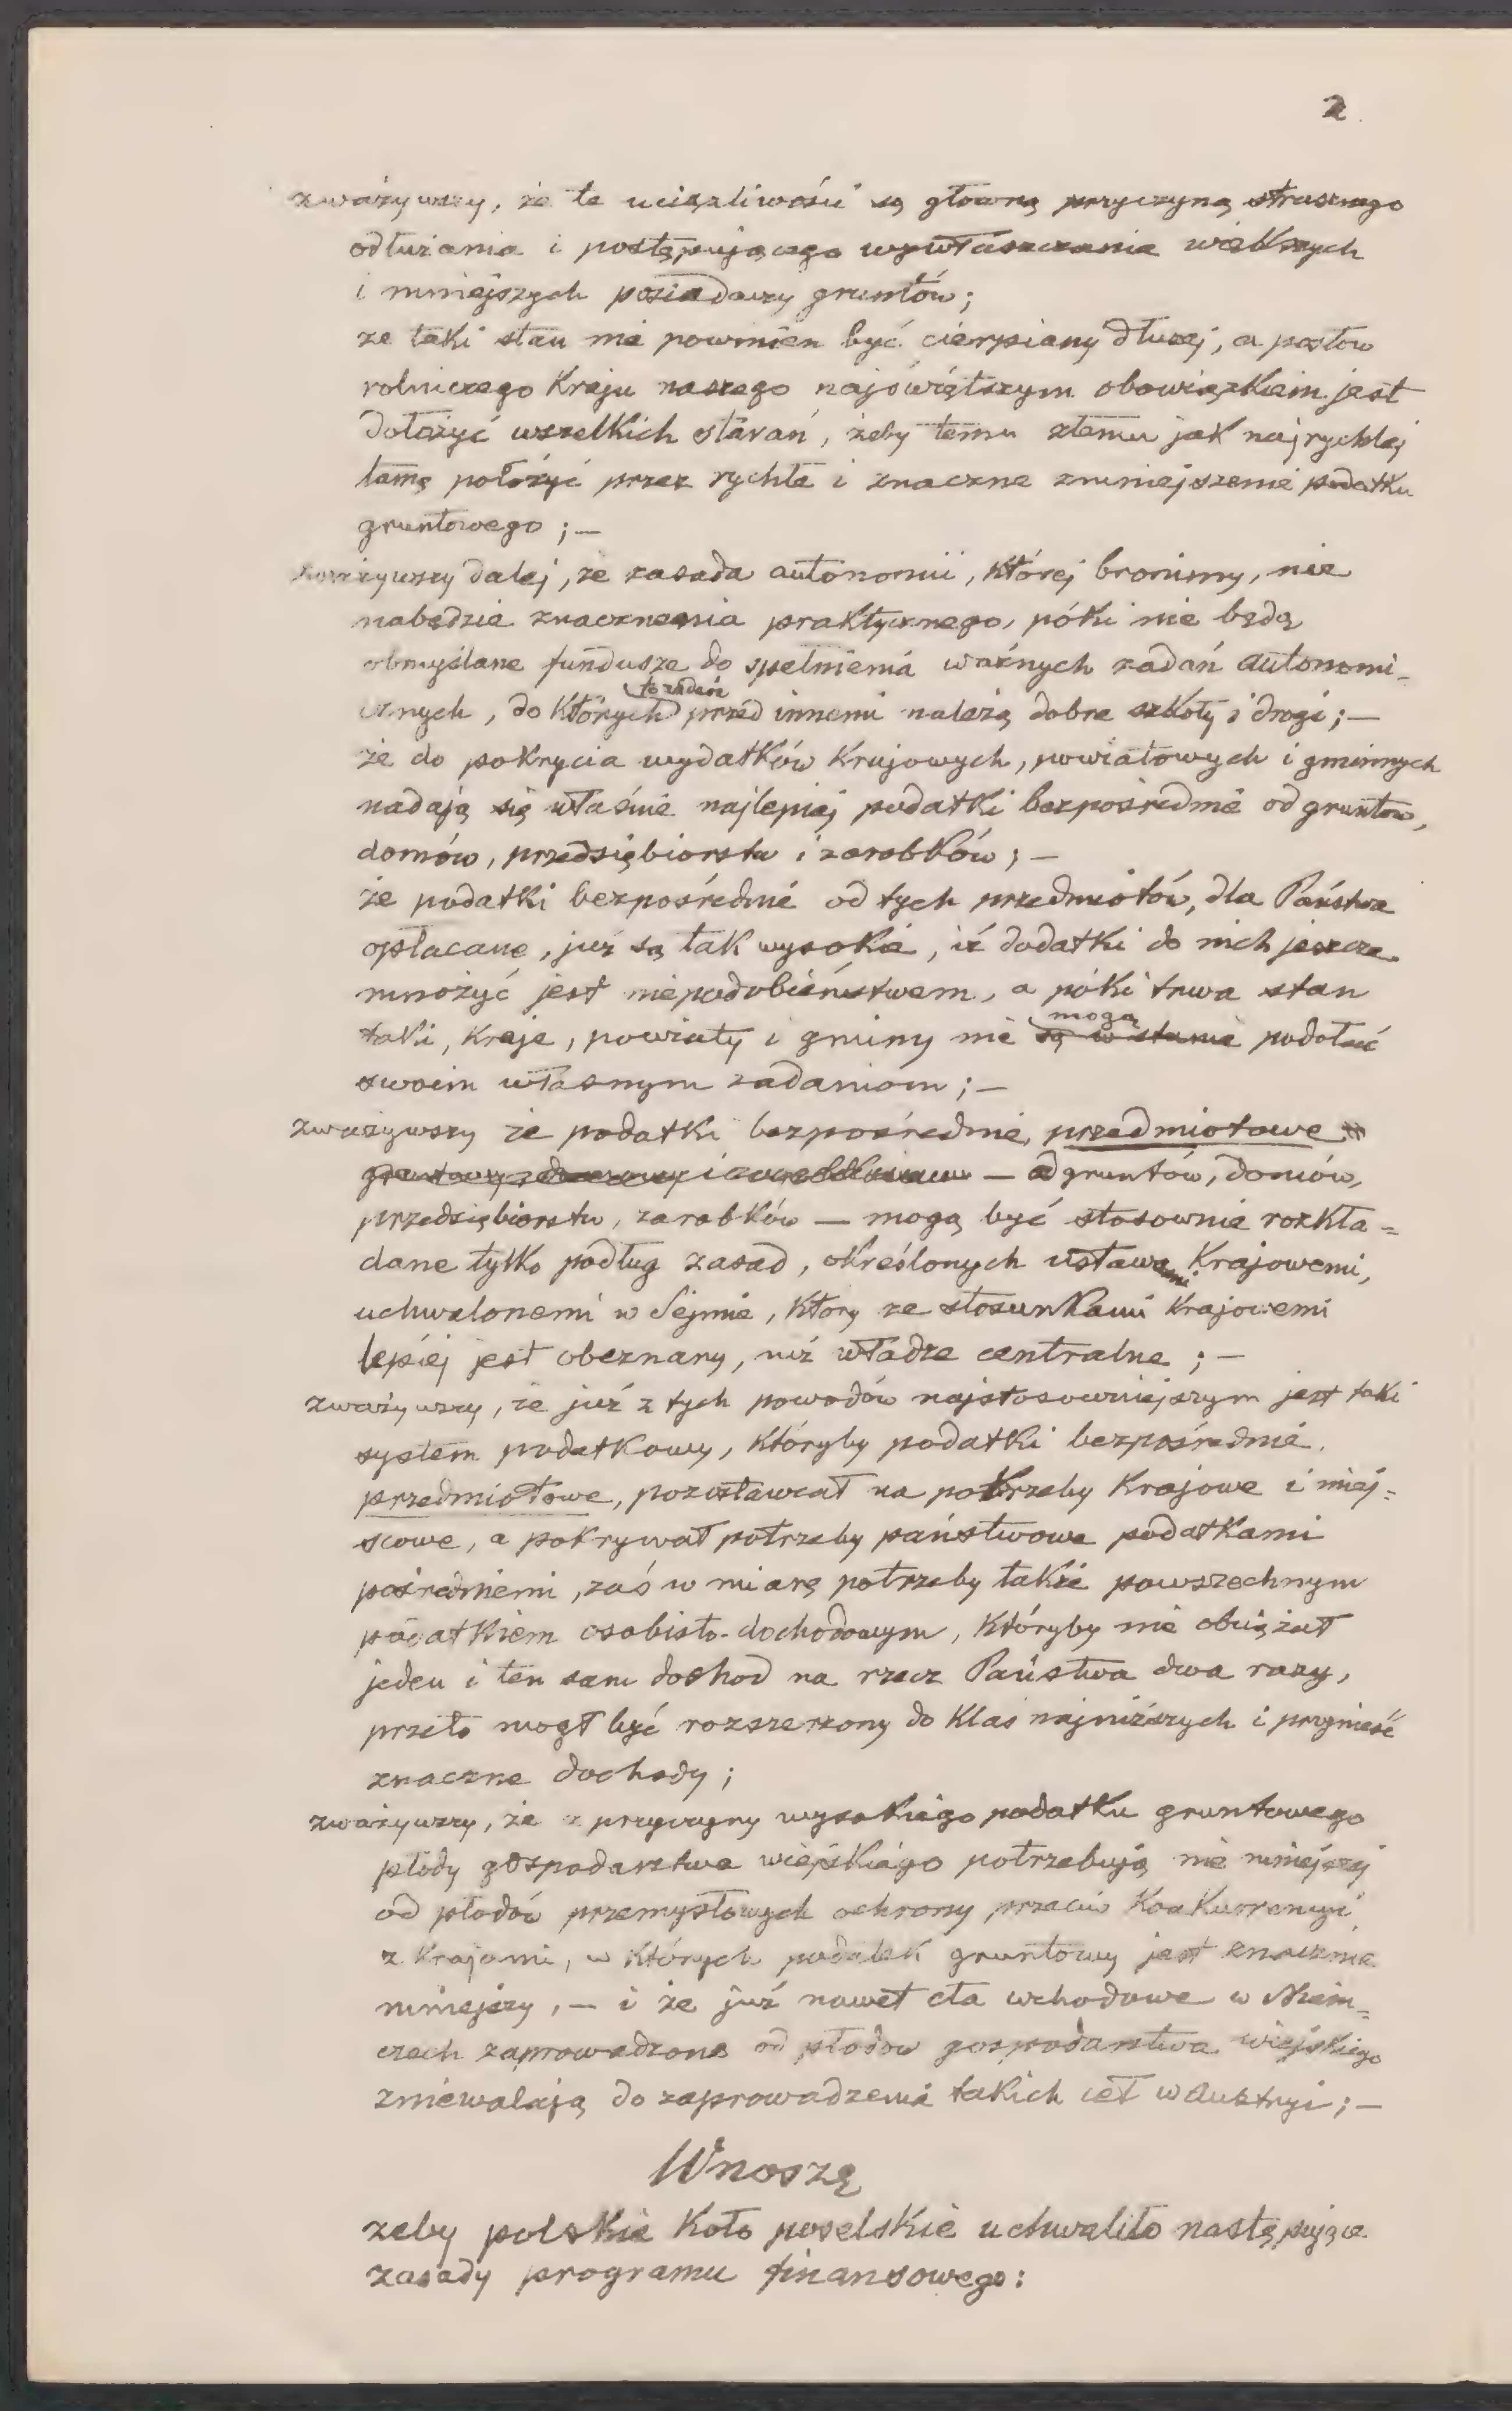 2
zważywszy, że te uciążliwości są główną przyczyną strasznego
odłużania i postępującego wywłaszczania większych
i mniejszych posiadaczy gruntów;
że taki stan nie powinien być cierpiany dłużej, a posłów
rolniczego Kraju naszego najświętszym obowiązkiem jest
dołożyć wszelkich starań, żeby temu złemu jak najrychlej
tamę położyć przez rychłe i znaczne zmniejszenie podatku
gruntowego; —
zważywszy dalej, że zasada autonomii, której bronimy, nie
nabędzie znaczenia praktycznego, póki nie będą
obmyślane fundusze do spełnienia ważnych zadań autonomi-
cznych, do których przed innemi należą dobre szkoły i drogi; —
że do pokrycia wydatków Krajowych, powiatowych i gminnych
nadają się właśnie najlepiej podatki bezpośrednie od gruntów,
domów, przedsiębiorstw i zarobków; —
że podatki bezpośrednie od tych przedmiotów, dla Państwa
opłacane, już są tak wysokie, iż dodatki do nich jeszcze
mnożyć jest niepodobieństwem, a póki trwa stan
taki, Kraje, powiaty i gminy nie są w stanie mogą podołać
swoim własnym zadaniom; —
zważywszy że podatki bezpośrednie, przedmiotowe
— od gruntów, domów,
przedsiębiorstw, zarobków — mogą być stosownie rozkła=
dane tylko podług zasad, określonych ustawami Krajowemi,
uchwalonemi w Sejmie, który ze stosunkami Krajowemi
lepiej jest obeznany, niż władze centralne; —
zważywszy, że już z tych powodów najstosowniejszym jest taki
system podatkowy, któryby podatki bezpośrednie,
przedmiotowe, pozostawiał na potrzeby Krajowe i miej=
scowe, a pokrywał potrzeby państwowe podatkami
pośredniemi, zaś w miarę potrzeby także powszechnym
podatkiem osobisto-dochodowym, któryby nie obciążał
jeden i ten sam dochod na rzecz Państwa dwa razy,
przeto mógł być rozszerzony do Klas najniższych i przynieść
znaczne dochody;
zważywszy, że z przyczyny wysokiego podatku gruntowego
płody gospodarstwa wiejskiego potrzebują nie mniejszej
od płodów przemysłowych ochrony przeciw Konkurrencyi
z Krajami, w których podatek gruntowy jest znacznie
mniejszy, — i że już nawet cła wchodowe w Niem=
czech zaprowadzone od płodów gospodarstwa wiejskiego
zniewalają do zaprowadzenia takich ceł w Austryi; —
Wnoszę
żeby polskie Koło poselskie uchwaliło następujące
zasady programu finansowego: